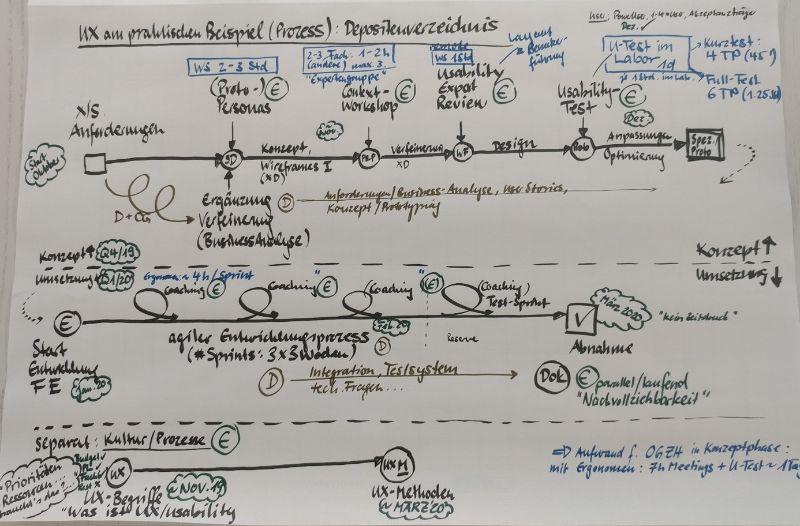 UX am praktischen Beispiel (Prozess): Depositenverzeichnis
User: Poweruser, Akzeptanzträger
Dez. ✓
WS 2-3 Std
2-3 Fach: 1-2h
(andere) max. 3
"Expertengruppe"
remote
WS 1Std
Layout
& Benutzer-
führung
U-Test im
Labor
1d
je 1 Std. im Lab.
Kurztest:
4 TP (45')
Full-Test
6 TP (1.25Std
(Proto-)
Personas
E
Context-
Workshop
E
Usability
Expert
Review
E
Usability-
Test
E
Dez
X/S
Anforderungen
Start
Oktober
SD
Konzept,
Wireframes I
(XD)
~Nov.
Verfeinerung
XD
WF
Design
Proto
Anpassungen
Optimierung
Spez./
Proto
D+CG
Ergänzung
Verfeinerung
(BusinessAnalyse)
D
Anforderungen/Business-Analyse, User Stories,
Konzept/Prototyping
Konzept ↑ Q4/19
Konzept ↑
Umsetzung Q1/20
Umsetzung ↓
Ergonom: ~4h/Sprint
Coaching E
(Coaching " E
(Coaching " (E)
(Coaching)
Test-Sprint
E
agiler Entwicklungsprozess
(#Sprints: 3x3Wochen)
Feb. 20
D
Reserve
März 2020
"kein Zeitdruck"
Abnahme
Start
Entwicklung
FE
Jan. 20
D
Integration, Testsystem
tech. Fragen...
Dok
E parallel/laufend
"Nachvollziehbarkeit"
separat: Kultur/Prozesse E
"Prioritäten
Ressourcen
braucht's das?"
Budget ✓
UX
UX-Begriffe
"Was ist UX/Usability
~Nov. 19
UX M
UX-Methoden
~MÄRZ '20
⇒ Aufwand f. OGZH in Konzeptphase:
mit Ergonomen: 7h Meetings + U-Test ~ 1Tag